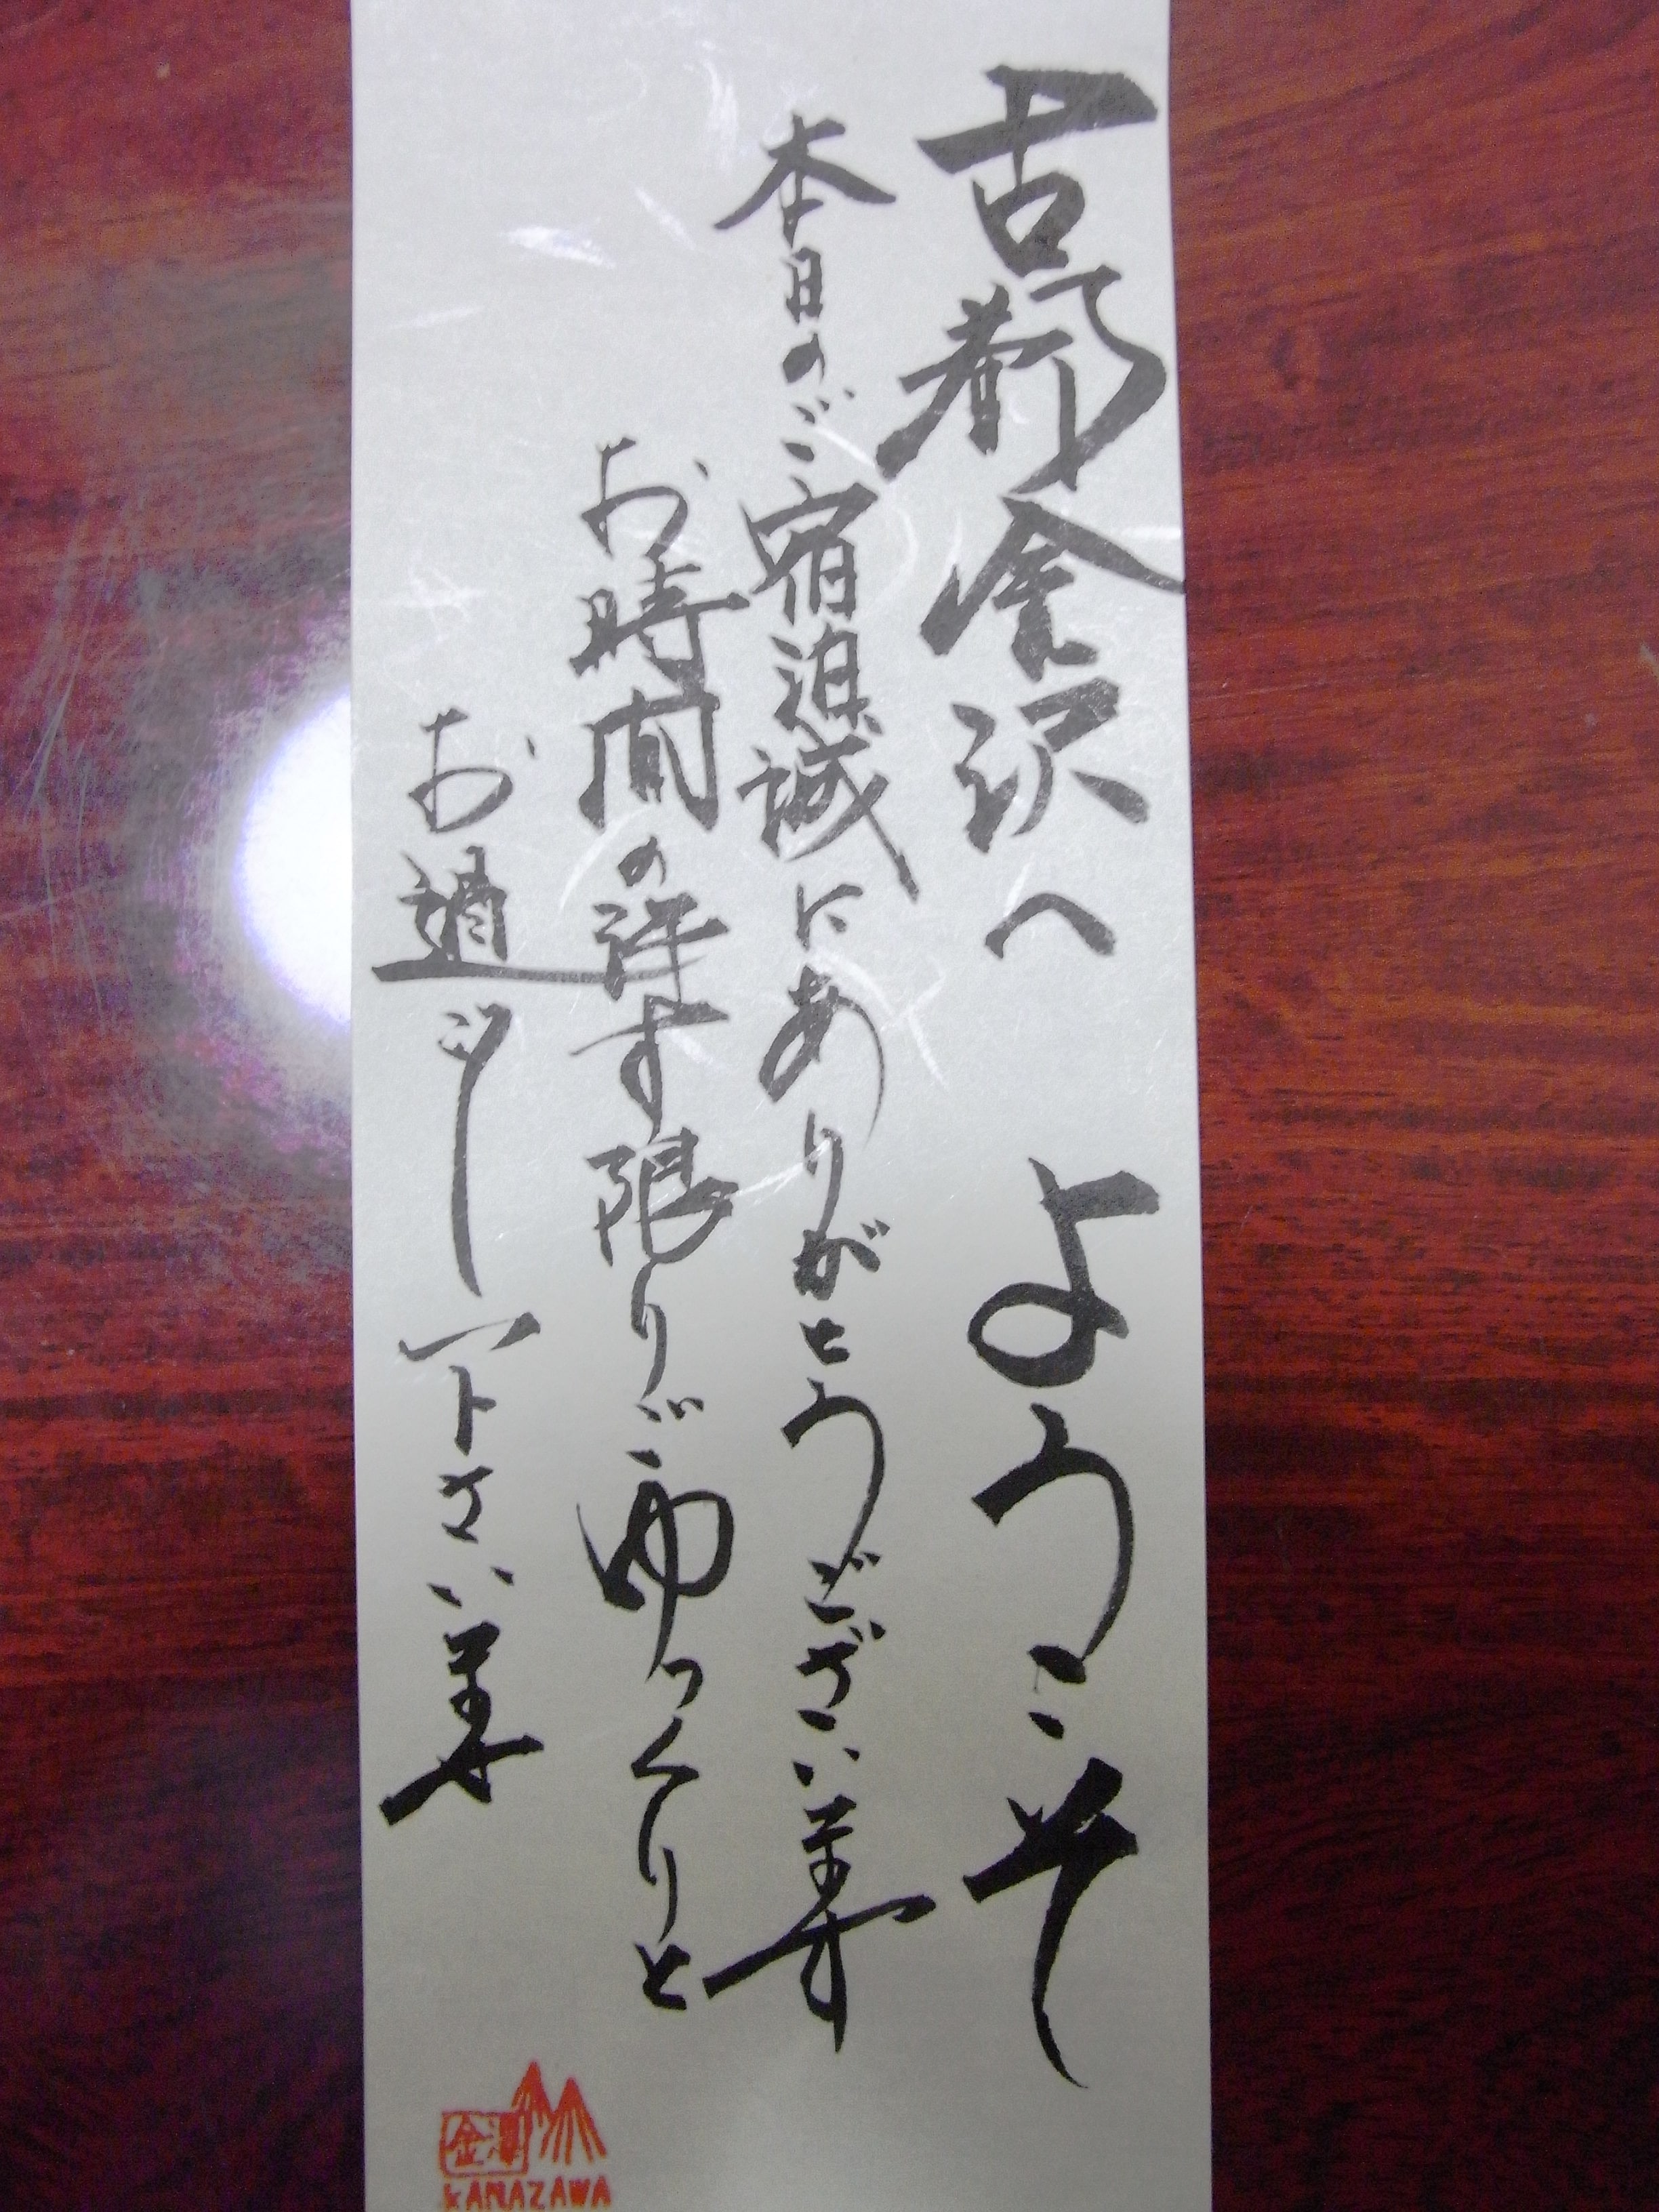 古都金沢へ ようこそ
本日のご宿泊誠にありがとうございます
お時間の許す限りごゆっくりと
お過ごし下さいませ
金沢
KANAZAWA